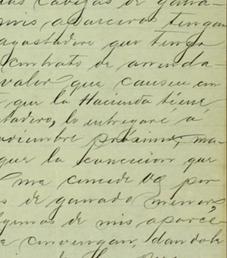 las cabezas de gana-
mis aparceros tengan
agostadero que tenga
contrato de arrenda-
valor que causen en
que la Hacienda tiene
tadero, lo entregaré a
viembre próximo, ma-
que la concesion que
me concede Vg por
s de ganado menor,
lgunos de mis aparce
e convengan, dandole